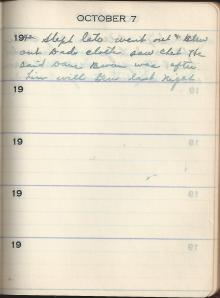 OCTOBER 7
19 Slept late went out &
out Dads cloth saw Chet He
said Dave was after
him with last night
19
19
19
19